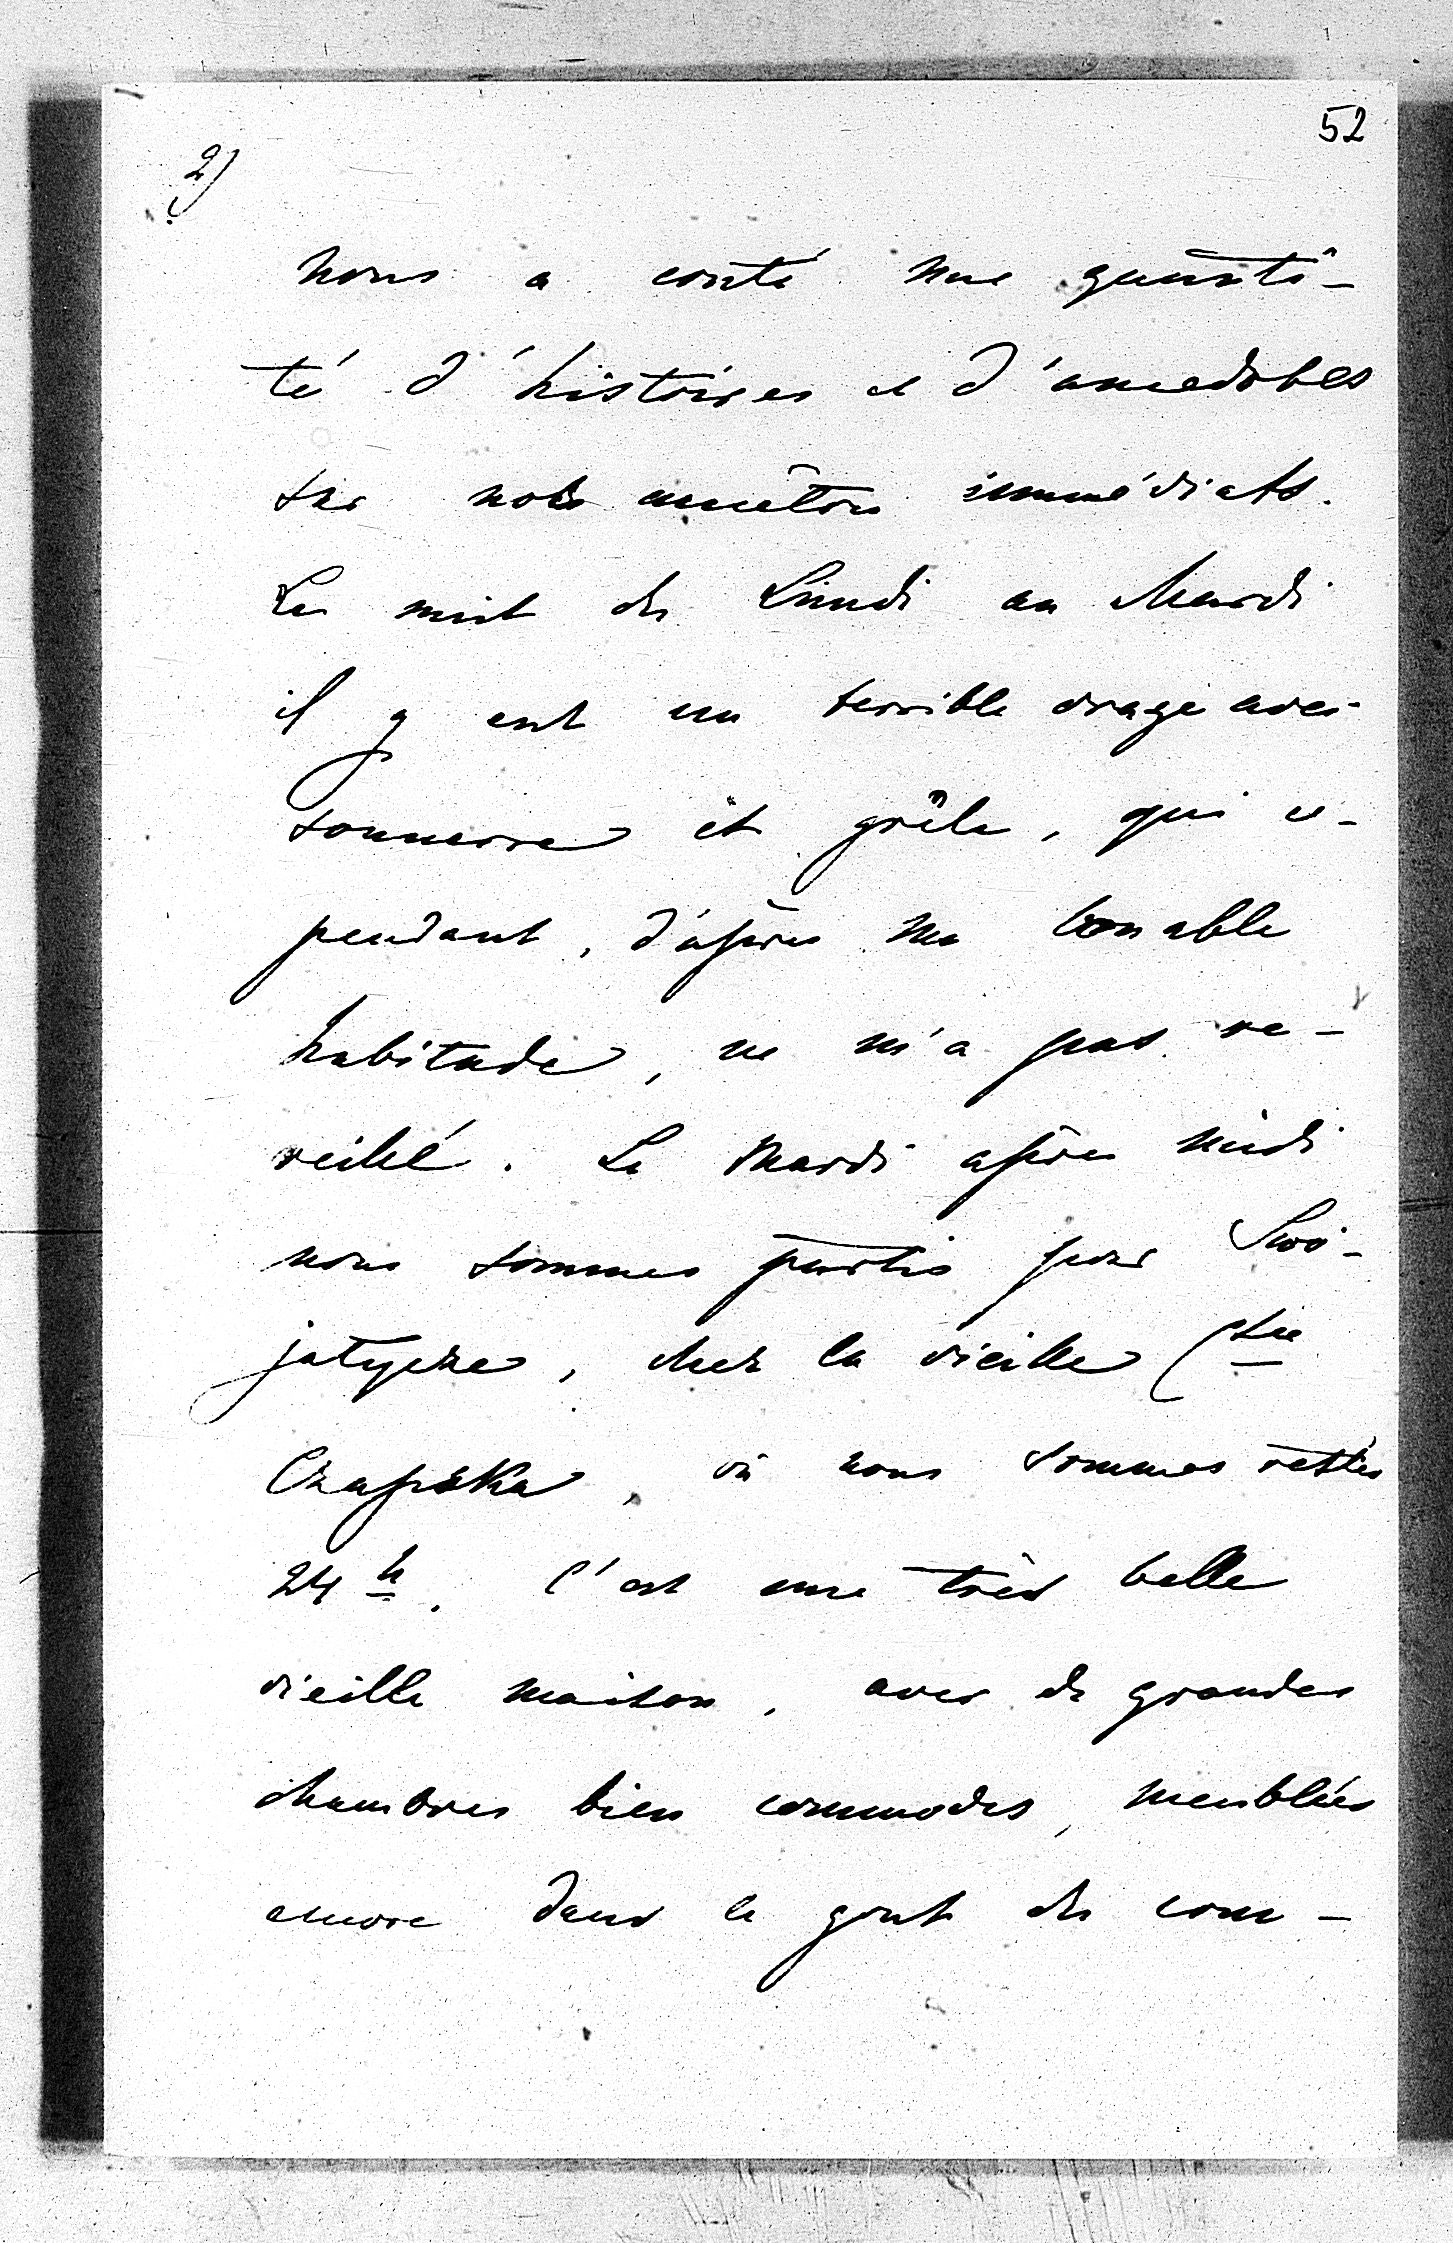 52
2)
nous a conté une quanti-
té d'histoires et d'anecdotes
sur nos ancêtres immédiats.
La nuit du Lundi au Mardi
il y eut un terrible orage avec
tonnerre et grêle, qui ce-
pendant, d'après ma louable
habitude, ne m'a pas re-
veillé. Le Mardi après midi
nous sommes partis pour Swo-
jatycze, chez la vieille Ctsse
Czapska, où nous sommes restés
24 h. C'est une très belle
vieille maison, avec de grandes
chambres bien commodes, meublées
encore dans le gout du com-